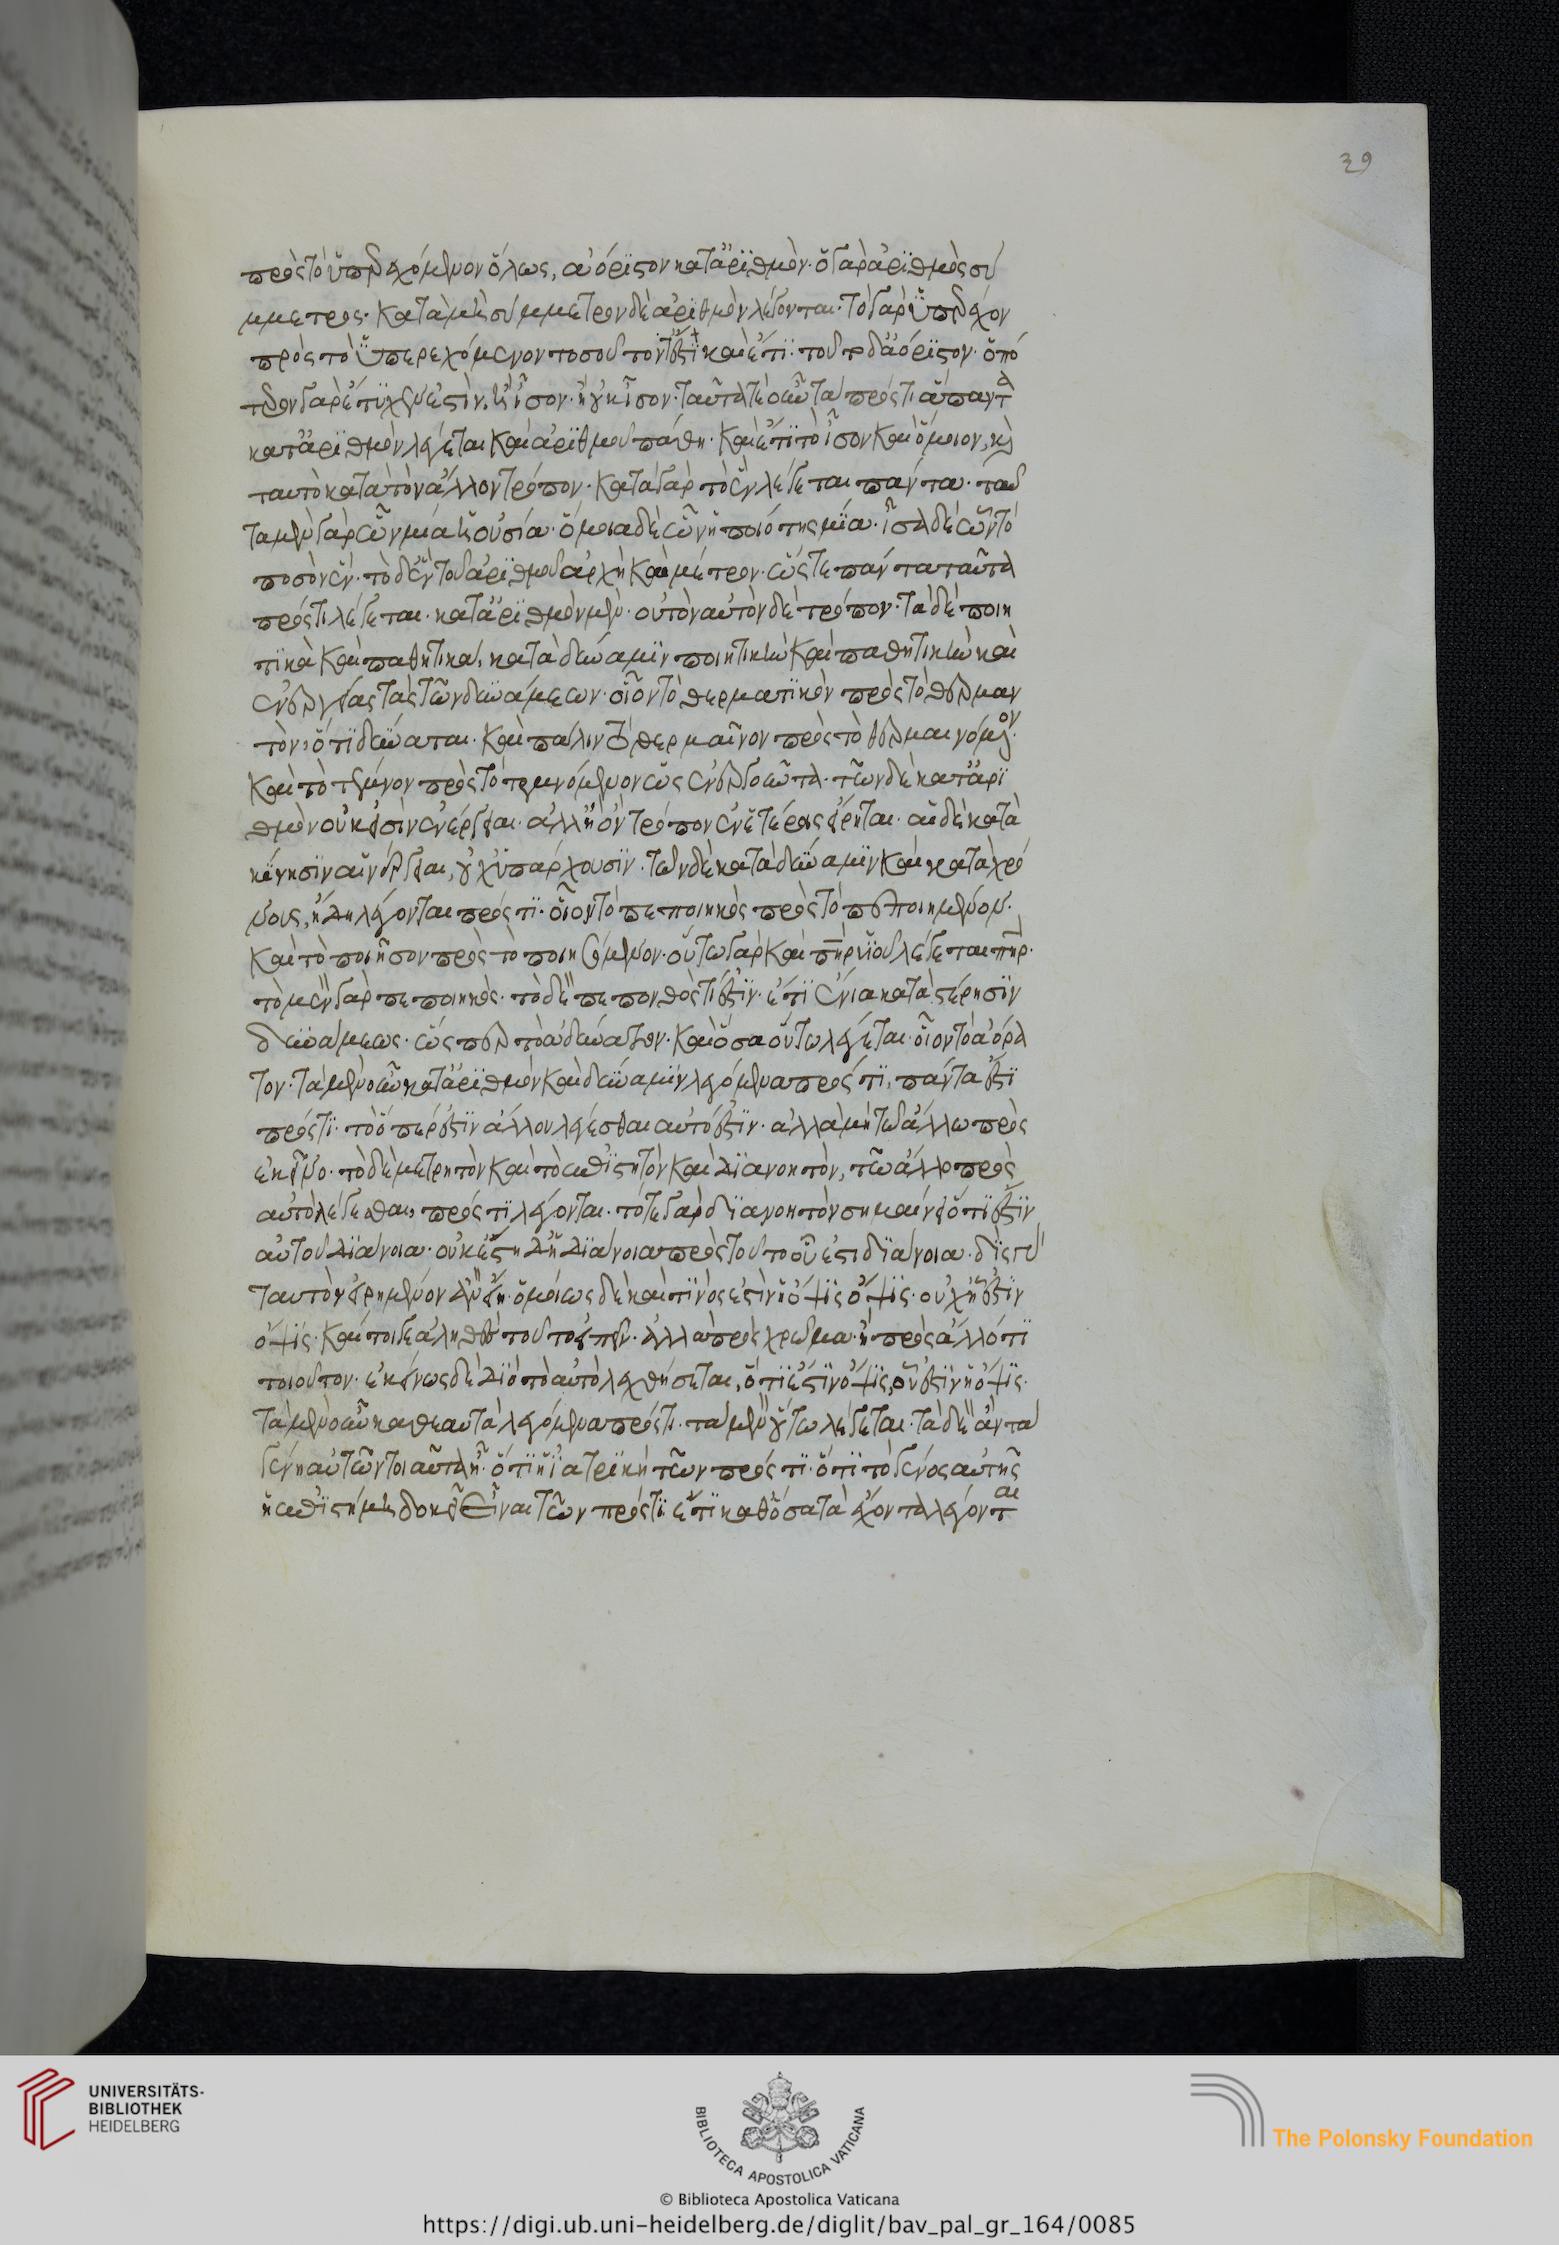 39
πρὸς τὸ ὑπερεχόμενον ὅλως, ἀόριστον κατ' ἀριθμόν· ὁ γὰρ ἀριθμὸς σύ
μμετρος· κατὰ μὴ σύμμετρον δὲ ἀριθμὸν λέγονται· τὸ γὰρ ὑπερέχον
πρὸς τὸ ὑπερεχόμενον τοσοῦτον τί ἐστι καὶ ἔτι· τοῦτο δ' ἀόριστον· ὁπό
τερον γὰρ ἔτυχεν ἐστὶν, ἢ ἴσον· ἢ οὐκ ἴσον· ταῦτά τε οὖν τὰ πρός τι ἅπαντα
κατ' ἀριθμὸν λέγεται καὶ ἀριθμοῦ πάθη· καὶ ἔτι τὸ ἴσον καὶ ὅμοιον, καὶ
ταυτὸ κατὰ τὸν ἄλλον τρόπον· κατὰ γὰρ τὸ ἓν λέγεται πάντα· ταυ
τὰ μὲν γὰρ ὧν μία ἡ οὐσία· ὅμοια δὲ ὧν ἡ ποιότης μία· ἴσα δὲ ὧν τὸ
ποσὸν ἕν· τὸ δ' ἓν τοῦ ἀριθμοῦ ἀρχὴ καὶ μέτρον· ὥστε πάντα ταῦτα
πρός τι λέγεται· κατ' ἀριθμὸν μέν· οὐ τὸν αὐτὸν δὲ τρόπον· τὰ δὲ ποιη
τικὰ καὶ παθητικὰ, κατὰ δύναμιν ποιητικὴν καὶ παθητικὴν καὶ
ἐνεργείας τὰς τῶν δυνάμεων· οἷον τὸ θερμαντικὸν πρὸς τὸ θερμαν
τὸν, ὅτι δύναται· καὶ πάλιν τὸ θερμαῖνον πρὸς τὸ θερμαινόμενον·
καὶ τὸ τέμνον πρὸς τὸ τεμνόμενον ὡς ἐνεργοῦντα· τῶν δὲ κατ' ἀρι
θμὸν οὐκ εἰσὶν ἐνέργειαι· ἀλλ' ἢ ὃν τρόπον ἐν ἑτέροις εἴρηται· αἱ δὲ κατὰ
κίνησιν ἐνέργειαι, οὐχ ὑπάρχουσιν· τῶν δὲ κατὰ δύναμιν καὶ κατὰ χρό
νους, ἤδη λέγονται πρός τι· οἷον τὸ πεποιηκὸς πρὸς τὸ πεποιημένον·
καὶ τὸ ποιῆσον πρὸς τὸ ποιησόμενον· οὕτω γὰρ καὶ πὴρ υἱοῦ λέγεται πήρ·
τὸ μὲν γὰρ πεποιηκὸς· τὸ δὲ πεπονθὸς τί ἐστιν· ἔτι ἔνια κατὰ στέρησιν
δυνάμεως· ὥσπερ τὸ ἀδύνατον· καὶ ὅσα οὕτω λέγεται· οἷον τὸ ἀόρα
τον· τὰ μὲν οὖν κατ' ἀριθμὸν καὶ δύναμιν λεγόμενα πρός τι, πάντα ἐστὶ
πρός τι· τὸ ὅπερ ἐστὶν ἄλλου λέγεσθαι αὐτό ἐστιν· ἀλλὰ μὴ τῶ ἄλλω πρὸς
ἐκεῖνο· τὸ δὲ μετρητὸν καὶ τὸ ἐπιστητὸν καὶ διανοητὸν, τῶ ἄλλο πρὸς
αὐτὸ λέγεσθαι, πρός τι λέγονται· τό τε γὰρ διανοητὸν σημαίνει ὅτι ἐστὶν
αὐτοῦ διάνοια· οὐκ ἔστι δ' ἡ διάνοια πρὸς τοῦτο οὗ ἐστι διάνοια· δὶς γὰρ
ταυτὸν εἰρημένον ἂν εἴη· ὁμοίως δὲ καὶ τινός ἐστὶν ἡ ὄψις ὄψις· οὐχ οὗ ἐστὶν
ὄψις· καί τοι γε ἀληθὲς τοῦτο εἰπεῖν· ἀλλὰ πρὸς χρῶμα· ἢ πρὸς ἄλλό τι
τοιοῦτον· ἐκείνως δὲ δὶς τὸ αὐτὸ λεχθήσεται, ὅτι ἐστὶν ὄψις, οὗ ἐστὶν ἡ ὄψις·
τὰ μὲν οὖν καθ' ἑαυτὰ λεγόμενα πρός τι· τὰ μὲν οὕτω λέγεται· τὰ δὲ ἂν τὰ
γένη αὐτῶν τοιαῦτα ᾖ· ὅτι ἡ ἰατρικὴ τῶν πρός τι· ὅτι τὸ γένος αὐτῆς
ἡ ἐπιστήμη δοκεῖ εἶναι τῶν πρός τι ἔτι καθ' ὅσα τὰ ἔχοντα λέγονται
UNIVERSITÄTS-
BIBLIOTHEK
HEIDELBERG
BIBLIOTECA APOSTOLICA VATICANA
The Polonsky Foundation
© Biblioteca Apostolica Vaticana
https://digi.ub.uni-heidelberg.de/diglit/bav_pal_gr_164/0085